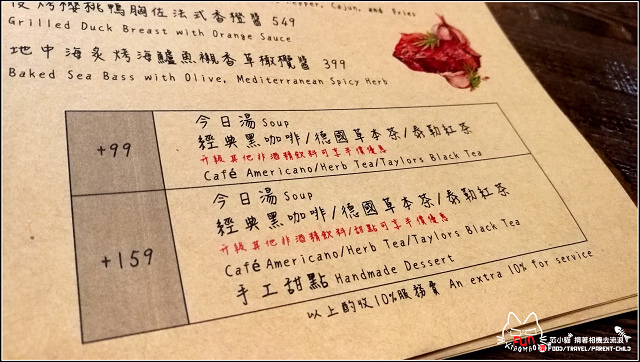 炙烤櫻桃鴨胸佐法式香橙醬 549
Pepper, Cajun, and Fries
Grilled Duck Breast with Orange Sauce
地中海炙烤海鱸魚襯香草橄欖醬 399
Baked Sea Bass with Olive, Mediterranean Spicy Herb
+99
今日湯 Soup
經典黑咖啡/德國草本茶/泰勒紅茶
升級其他非酒精飲料可享半價優惠
Café Americano/Herb Tea/Taylors Black Tea
+159
今日湯 Soup
經典黑咖啡/德國草本茶/泰勒紅茶
升級其他非酒精飲料/甜點可享半價優惠
Café Americano/Herb Tea/Taylors Black Tea
手工甜點 Handmade Dessert
以上酌收10%服務費 An extra 10% for service
FUN
范小貓 揹著相機去流浪
FOOD/TRAVEL/PARENT-CHILD